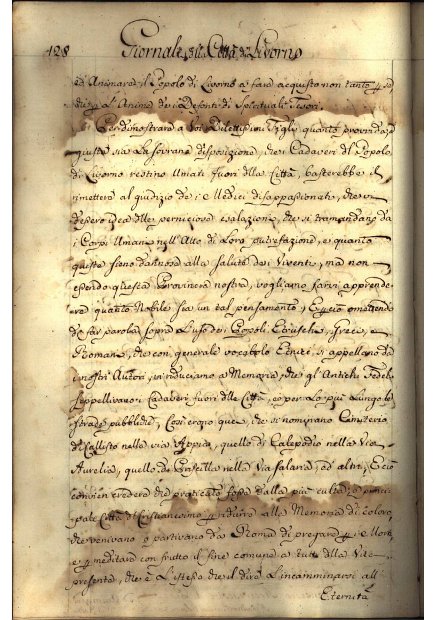 128 Giornale della Città di Livorno
ed Animare il Popolo di Livorno a fare acquisto non tanto
l'Anime dei Defonti di Spirituali Tesori.
Per dimostrare a Voi Dilettissimi Figli quanto provvida, e
giusta sia la Sovrana disposizione, che i Cadaveri del Popolo
di Livorno restino Umati fuori della Città, basterebbe il
rimettere al giudizio dei Medici disappassionati, che vi
dessero idea delle perniciose esalazioni, che si tramandano da
i Corpi Umani nell'Atto di Loro putrefazione, e quanto
queste sieno dannose alla salute dei Viventi, ma non
essendo questa Provincia nostra, vogliamo farvi apprende
re quanto Nobile sia un tal pensamento, E ciò omettendo
di far parola sopra l'uso dei Popoli Etruschi, Greci, e
Romani, che con generale vocabolo Etnici si appellano da
i nostri Autori, vi riduciamo a Memoria, che gl'Antichi Fedeli
seppellivano i Cadaveri fuori delle Città, e per lo più lungo le
strade pubbliche, Così erano quei, che si nominano Cimiterio
di Callisto nella via Appia, quello di Calepodio nella Via
Aurelia, quello di Priscilla nella Via Salaria, ed altri, E ciò
convien credere che praticato fosse dalla più culta, e princi
pale Città di Cristianesimo ridurre alla Memoria di coloro
che venivano o partivano da Roma di pregare i Morti
e meditare con frutto il fine comune a tutti della Vita
presente, che è l'istesso che il dire l'incamminarsi all'
Eternità